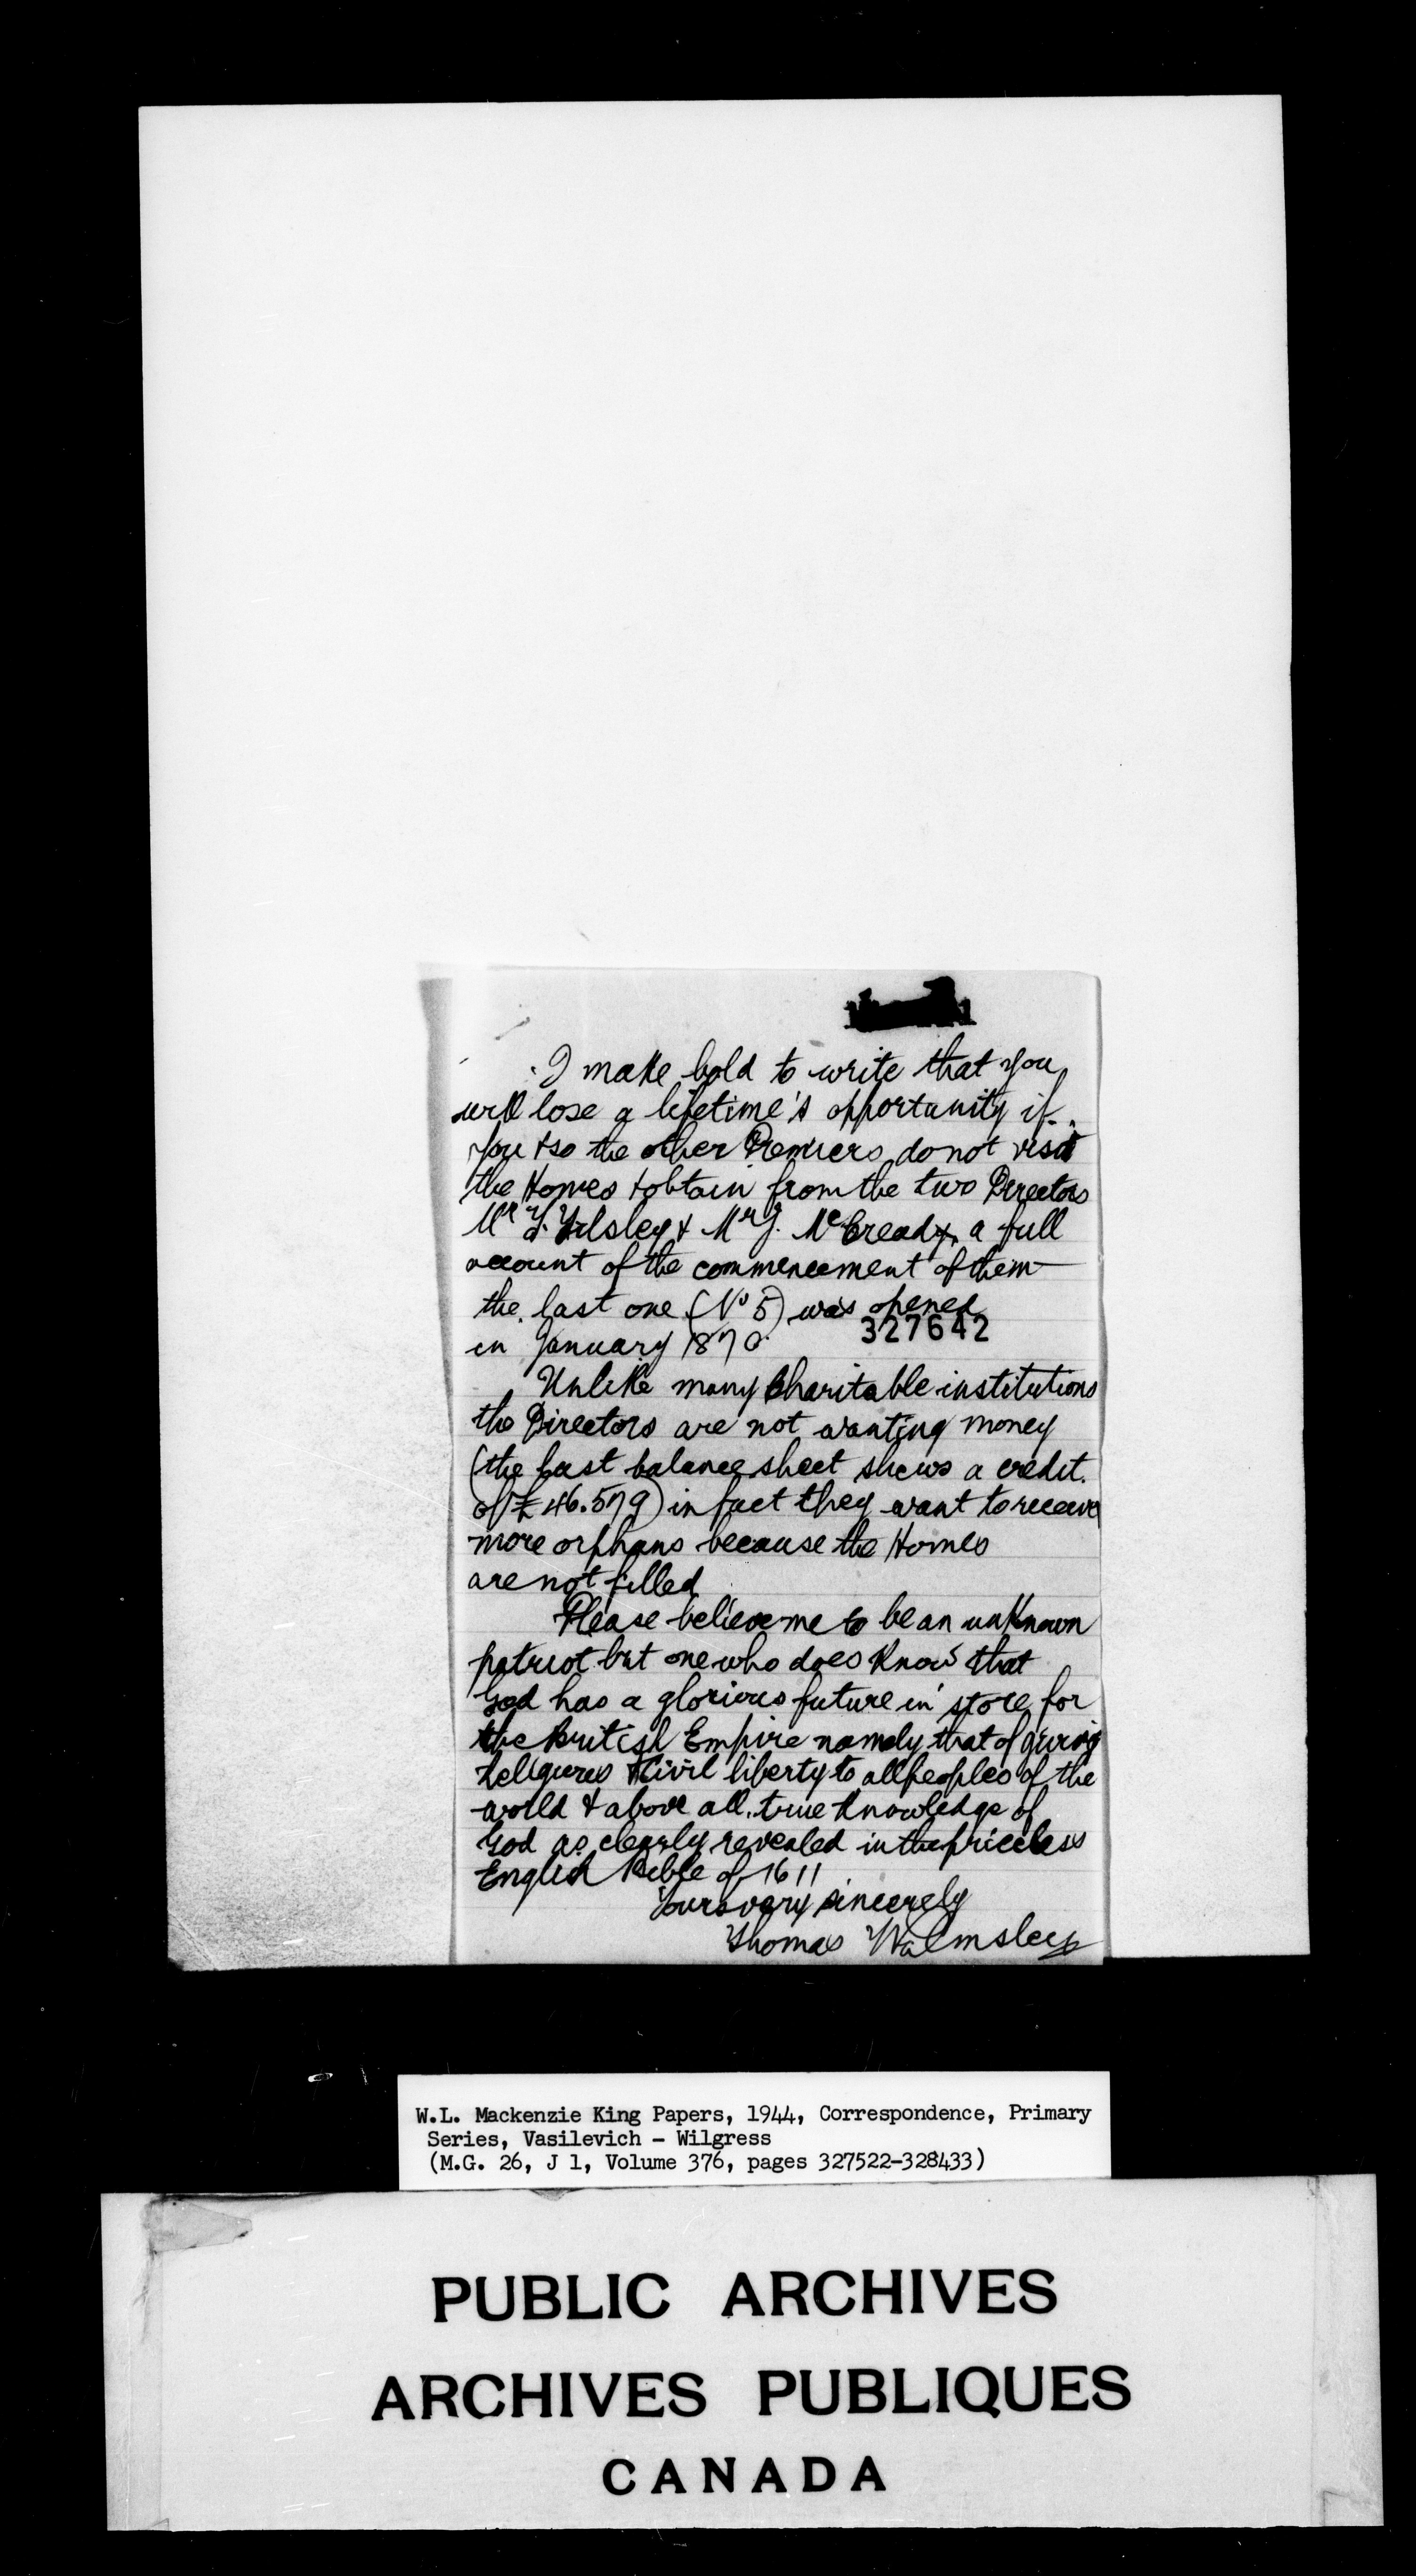 I make bold to write that you
will lose a lifetime's opportunity if
you & so the other Premiers do not visit
the Homes & obtain from the two Directors
Mr T. Tilsley & Mr J. McCready, a full
account of the commencement of them
the last one (No 5) was opened
327642
in January 1870
Unlike many Charitable institutions
the Directors are not wanting money
(the last balance sheet shews a credit.
of £46.579) in fact they want to receive
more orphans because the Homes
are not filled
Please believe me to be an unknown
patriot but one who does know that
God has a glorious future in store for
the British Empire namely that of giving
& Civil liberty to all peoples of the
world & above all, true knowledge of
God as clearly revealed in the priceless
English Bible of 1611
Yours very sincerely
Thomas Walmsley
W.L. Mackenzie King Papers, 1944, Correspondence, Primary
Series, Vasilevich - Wilgress
(M.G. 26, J 1, Volume 376, pages 327522-328433)
PUBLIC ARCHIVES
ARCHIVES PUBLIQUES
CANADA